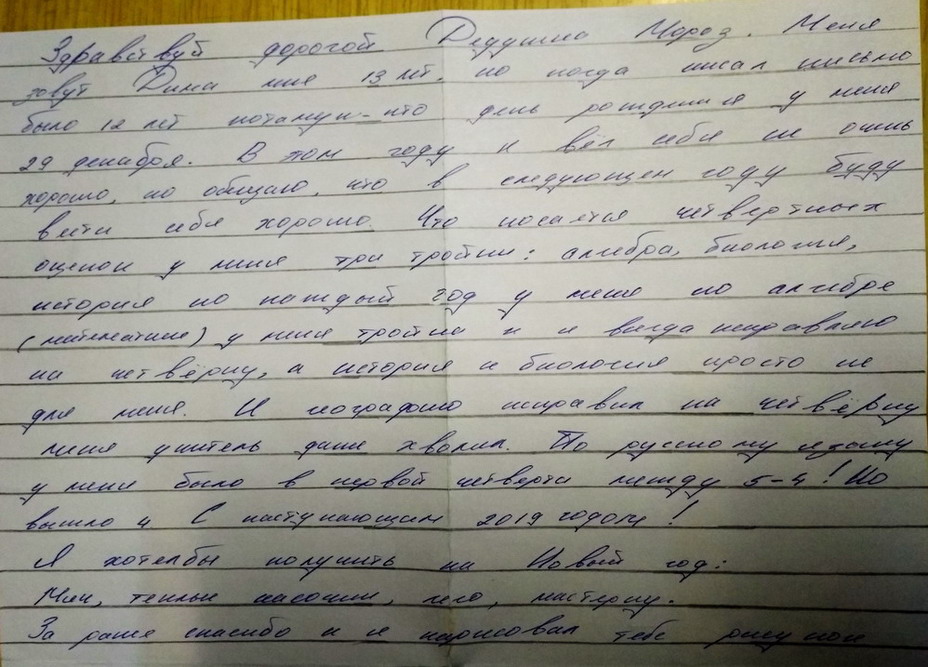 Здравствуй дорогой Дедушка Мороз. Меня
зовут Дима мне 13 лет, но когда писал письмо
было 12 лет потамуч-что день рождения у меня
29 декабря. В том году я вёл себя не очинь
хорошо, но обищаю, что в следующем году буду
вести себя хорошо. Что косается четвертных
оценок у меня три тройки: алгебра, биология,
история но каждый год у меня по алгебре
(математике) у меня тройка и я всегда исправляю
на четвёрку, а история и биология просто не
для меня. И географию исправил на четвёрку
меня учитель даже хволил. По русскому языку
у меня было в первой четверти между 5-4! Но
вышло 4 С наступающим 2019 годом!
Я хотелбы получить на Новый год:
Мяч, теплые носочки, лего, мастерку.
За ранее спасибо и я нарисовал тебе рисунок